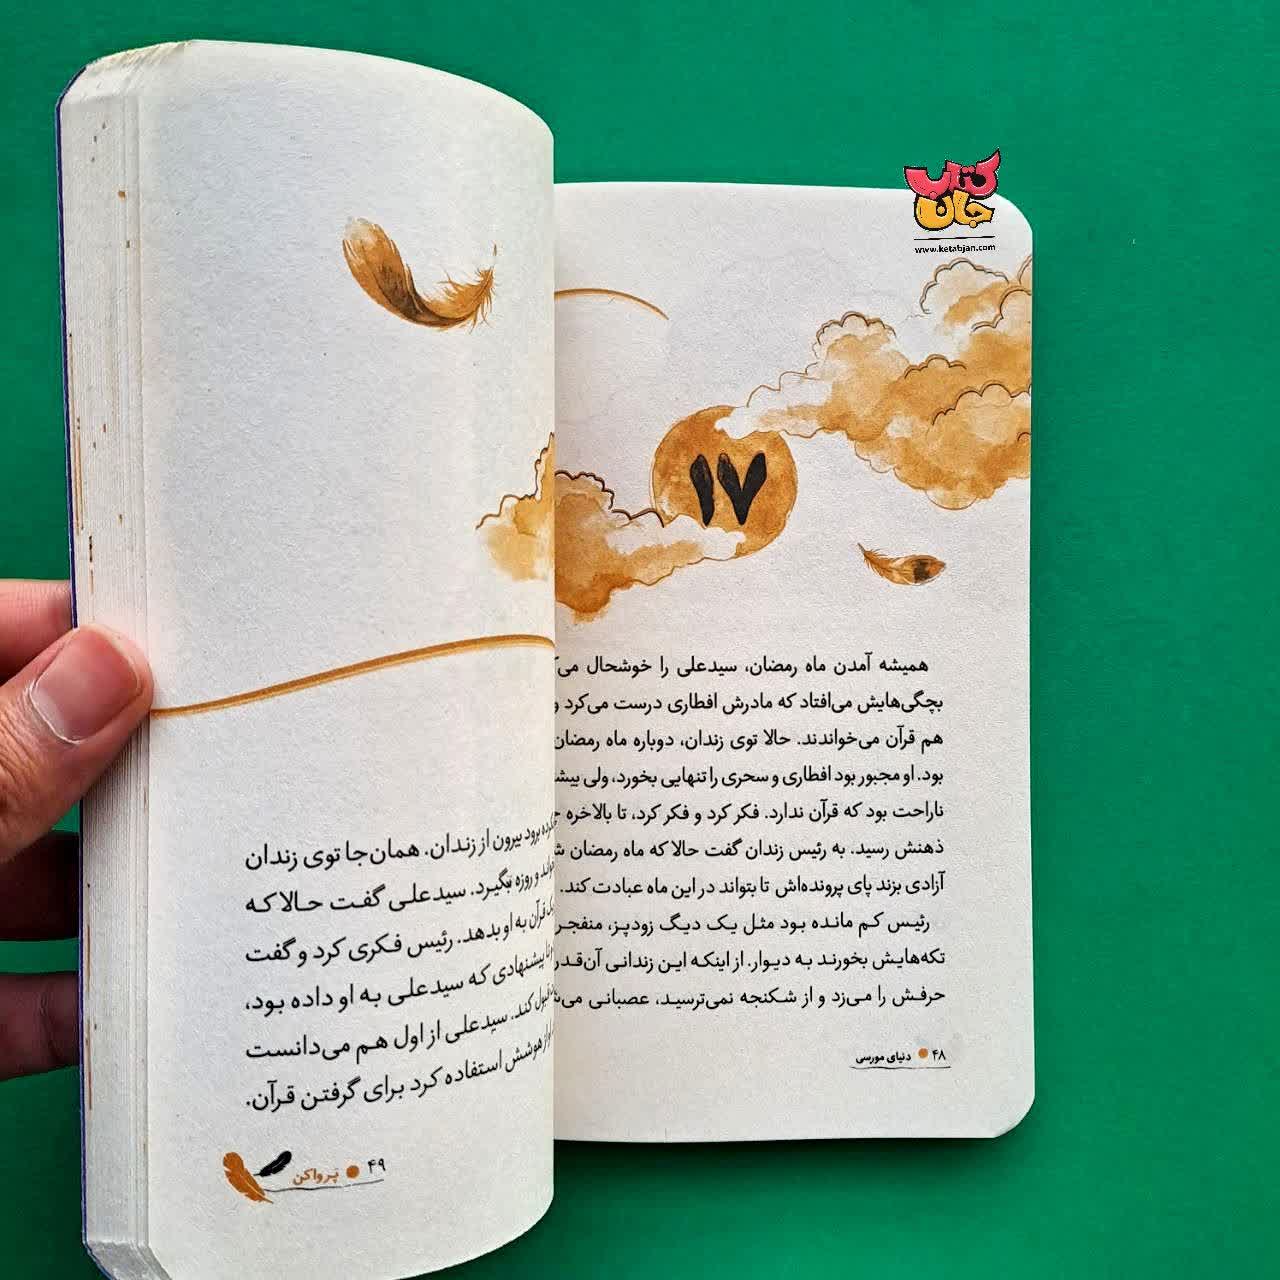 کتاب
جان
www.ketabjan.com
۱۷
همیشه آمدن ماه رمضان، سیدعلی را خوشحال
بچگی‌هایش می‌افتاد که مادرش افطاری درست می‌کرد و
هم قرآن می‌خواندند. حالا توی زندان، دوباره ماه رمضان
بود. او مجبور بود افطاری و سحری را تنهایی بخورد، ولی
ناراحت بود که قرآن ندارد. فکر کرد و فکر کرد، تا بالاخره
ذهنش رسید. به رئیس زندان گفت حالا که ماه رمضان
آزادی بزند پای پرونده‌اش تا بتواند در این ماه عبادت کند.
رئیس کم مانده بود مثل یک دیگ زودپز، منفجر
تکه‌هایش بخورند به دیوار. از اینکه این زندانی آن‌قدر
حرفش را می‌زد و از شکنجه نمی‌ترسید، عصبانی
۴۸ دنیای مورسی
برود بیرون از زندان. همان‌جا توی زندان
و روزه بگیرد. سیدعلی گفت حالا که
قرآن به او بدهد. رئیس فکری کرد و گفت
پیشنهادی که سیدعلی به او داده بود،
قبول کند. سیدعلی از اول هم می‌دانست
از هوشش استفاده کرد برای گرفتن قرآن.
۴۹ پرواکن